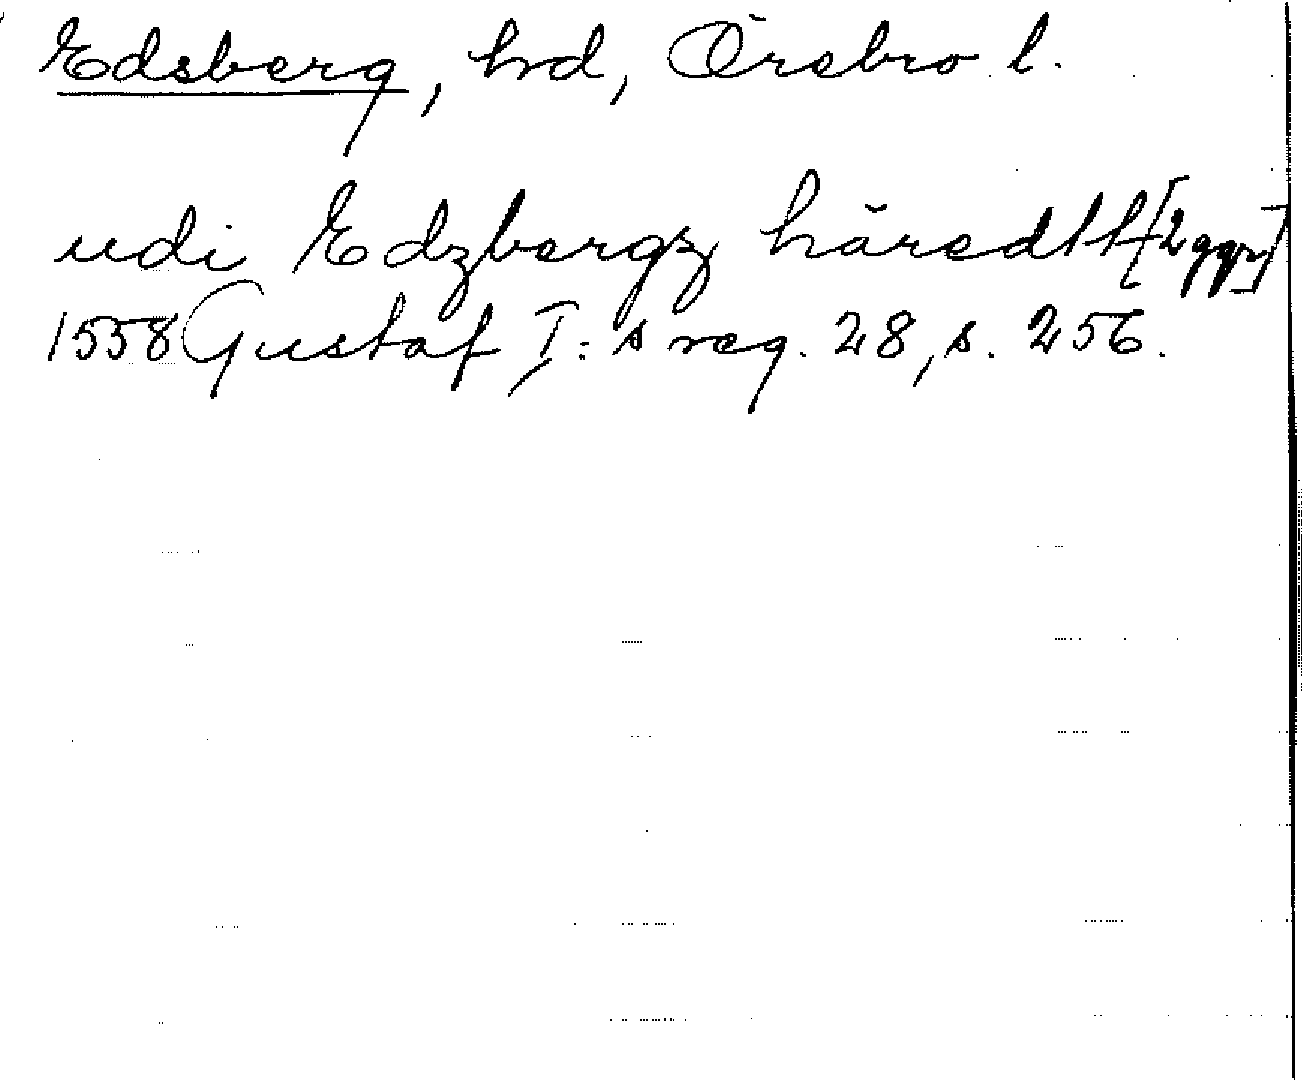 Edsberg, hrd, Örebro l.
udi Edzbergz häredth [2 ggr]
1558 Gustaf I:s reg. 28, s. 256.